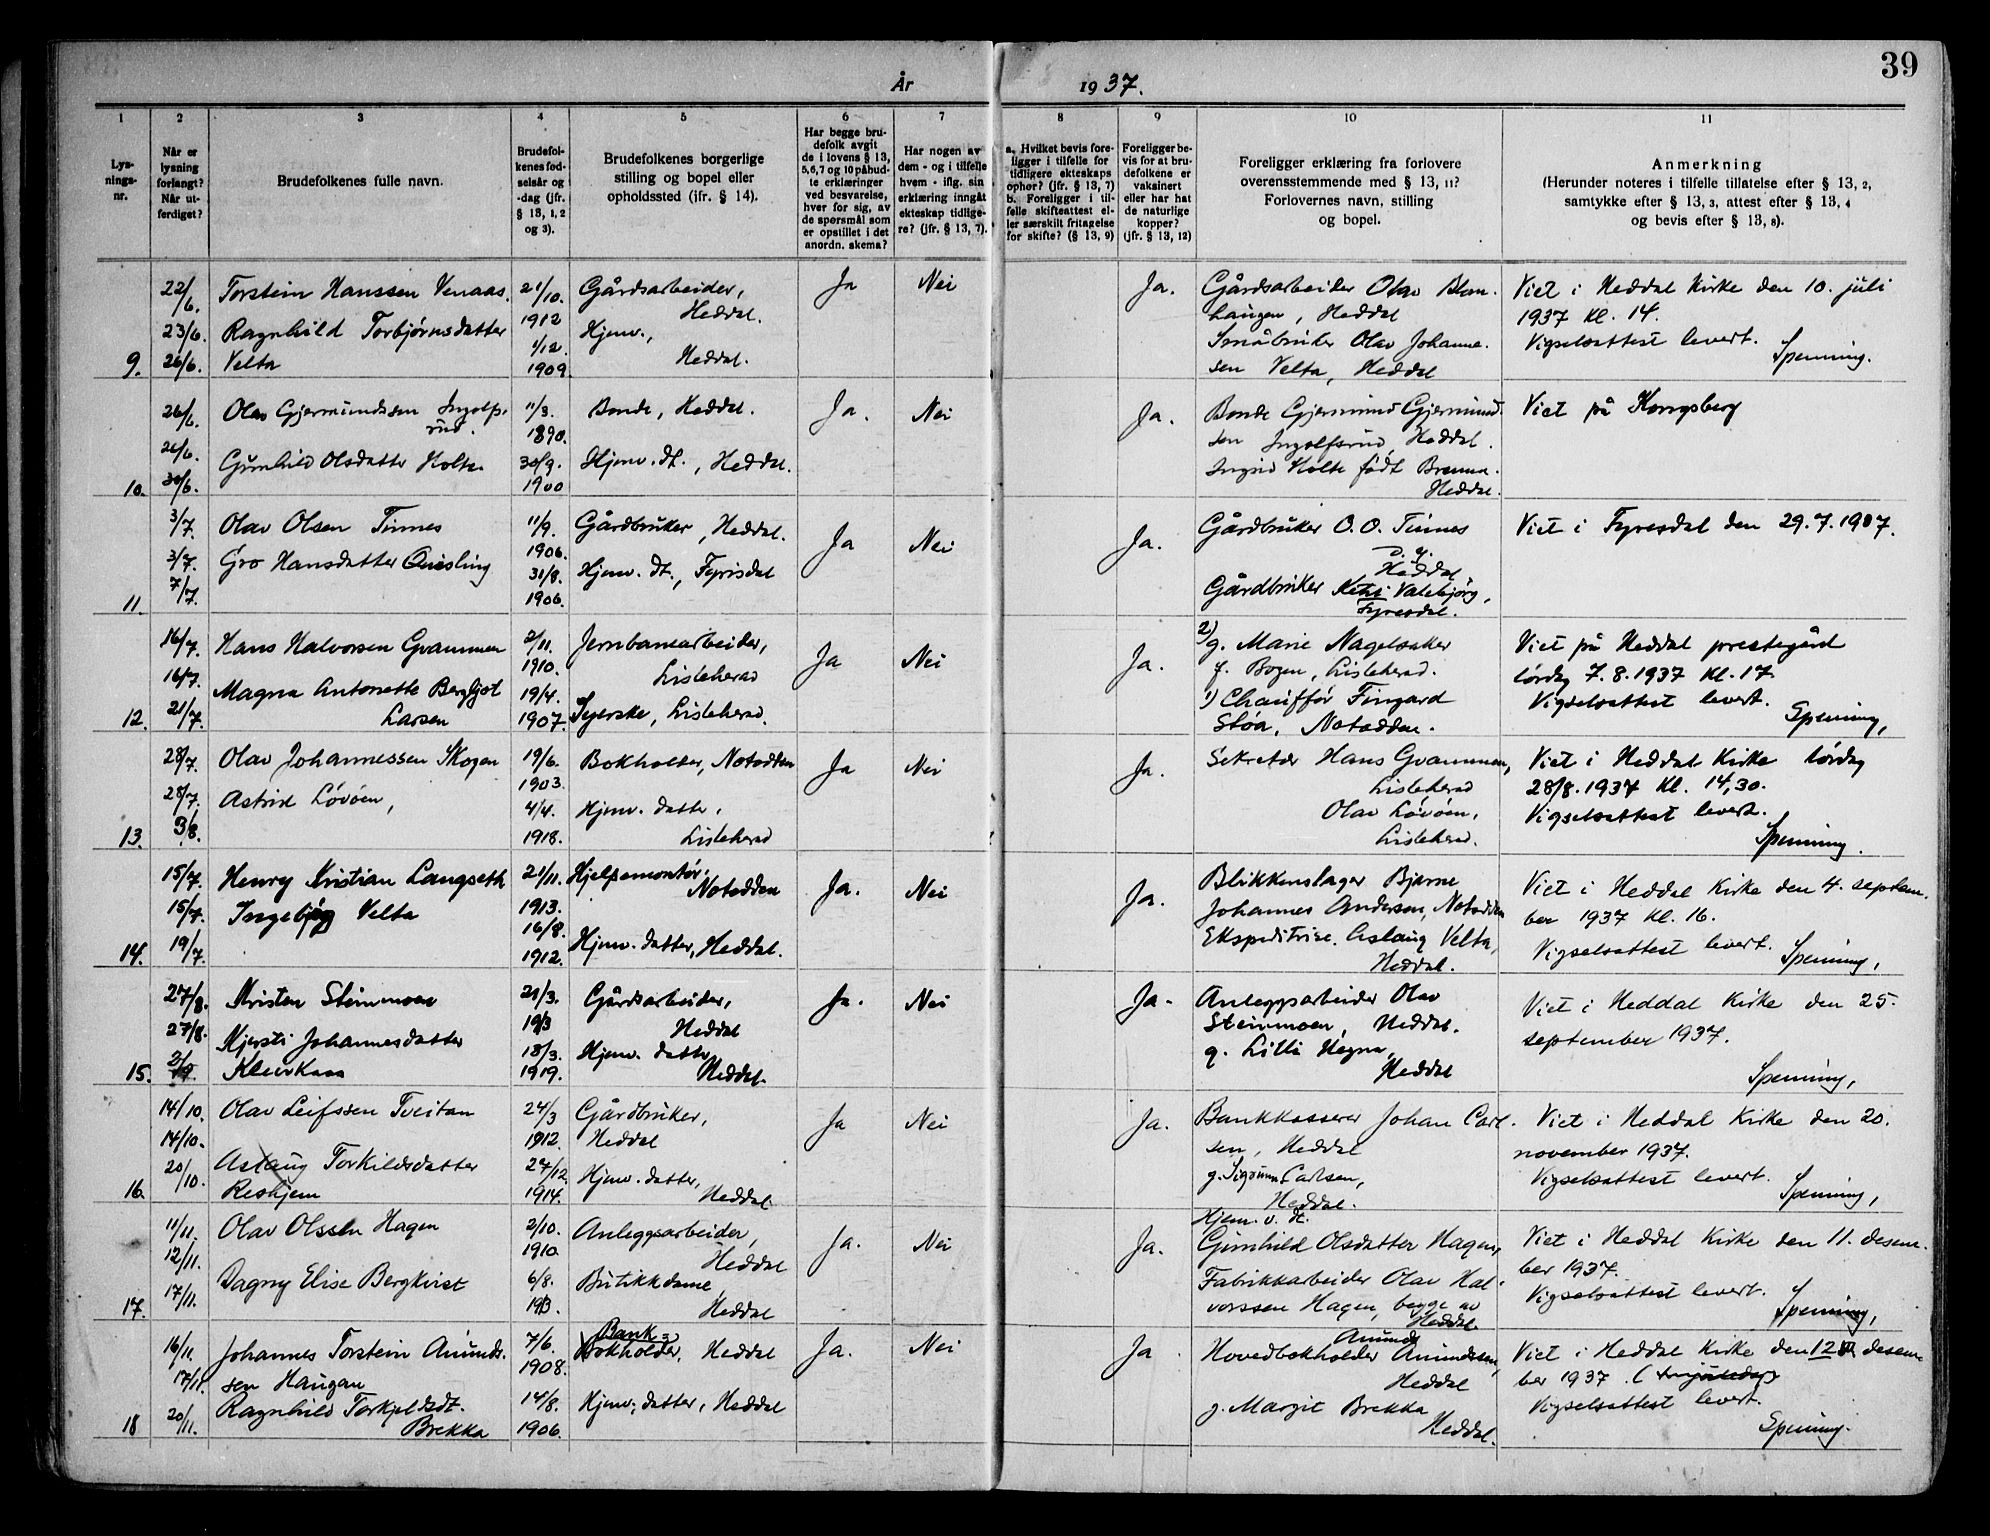 39
År 1937.
1 2 3 4 5 6 7 8 9 10 11
Lys-
nings-
nr.
Når er
lysning
forlangt?
Når ut-
ferdiget?
Brudefolkenes fulle navn.
Brudefol-
kenes fød-
selsår og
-dag (jfr.
§ 13, 1, 2
og 3).
Brudefolkenes borgerlige
stilling og bopel eller
opholdssted (ifr. § 14).
Har begge bru-
defolk avgit
de i lovens § 13,
5,6,7 og 10 påbud-
te erklæringer
ved besvarelse,
hver for sig, av
de spørsmål som
er opstillet i det
anordn. skema?
Har nogen av
dem - og i tilfelle
hvem - iflg. sin
erklæring inngått
ekteskap tidlige-
re? (jfr. § 13, 7).
a. Hvilket bevis fore-
ligger i tilfelle for
tidligere ekteskaps
ophør? (jfr. § 13, 7)
b. Foreligger i til-
felle skifteattest el-
ler særskilt fritagelse
for skifte? (§ 13, 9)
Foreligger be-
vis for at bru-
defolkene er
vaksinert
eller har hat
de naturlige
kopper?
(jfr. § 13, 12)
Foreligger erklæring fra forlovere
overensstemmende med § 13, 11?
Forlovernes navn, stilling
og bopel.
Anmerkning
(Herunder noteres i tilfelle tillatelse efter § 13, 2,
samtykke efter § 13, 3, attest efter § 13, 4
og bevis efter § 13, 8).
9.
22/6.
23/6.
26/6.
Torstein Hanssen Venaas.
Ragnhild Torbjørnsdatter
Velta
21/10.
1912
1/12.
1909.
Gårdsarbeider,
Heddal.
Hjemv.,
Heddal.
Ja
Nei
Ja.
Gårdsarbeider Olav
Heddal
Småbruker Olav Johanne-
sen Velta, Heddal
Viet i Heddal Kirke den 10. juli
1937 kl. 14.
Vigselsattest levert.
Spenning.
10.
26/6.
26/6.
30/6.
Olav Gjermundssen Ingolfs-
rud.
Gunhild Olsdatter Holte
11/3.
1890.
30/9.
1900
Bonde, Heddal.
Hjemv. dt., Heddal.
Ja.
Nei
Ja.
Bonde Gjermund Gjermund-
sen Ingolfsrud, Heddal.
Ingrid Holte født Brenna.
Heddal.
Viet på Kongsberg
11.
3/7.
3/7.
7/7.
Olav Olsen Tinnes
Gro Hansdatter Quisling
11/9.
1906.
31/8.
1906.
Gårdbruker, Heddal.
Hjemv. dt., Fyrisdal
Ja
Nei
Ja.
Gårdbruker O. O. Tinnes
d. y.
Heddal
Gårdbruker Ketil Valebjørg,
Fyresdal.
Viet i Fyresdal den 29.7.1937.
12.
16/7.
16/7.
21/7.
Hans Halvorsen Gvammen
Magna Antonette Bergljot
Larsen
2/11.
1910.
19/4.
1907.
Jernbanearbeider,
Lisleherad
Syerske, Lisleherad.
Ja
Nei
Ja.
2) g. Marie Nagelsaker
f. Bogen, Lisleherad.
1) Chauffør Fingard
Støa, Notodden.
Viet på Heddal prestegård
lørdag 7.8.1937 kl. 17.
Vigselsattest levert.
Spenning,
13.
28/7.
28/7.
3/8.
Olav Johannessen Skogen
Astrid Løvøen,
19/6.
1903.
4/4.
1918.
Bokholder, Notodden
Hjemv. datter,
Lisleherad
Ja
Nei
Ja.
Sekretær Hans Gvammen,
Lisleherad
Olav Løvøen,
Lisleherad.
Viet i Heddal Kirke lørdag
28/8. 1937 kl. 14,30.
Vigselsattest levert.
Spenning.
14.
15/7.
15/7.
19/7.
Henry Kristian Langseth
Ingebjørg Velta
21/11.
1913.
16/8.
1912.
Hjelpemontør,
Notodden
Hjemv. datter, Heddal.
Ja.
Nei
Ja.
Blikkenslager Bjarne
Johannes Andersen, Notodden
Ekspeditrise Aslaug Velta,
Heddal.
Viet i Heddal Kirke den 4. septem-
ber 1937 kl. 16.
Vigselsattest levert.
Spenning,
15.
27/8.
27/8.
2/9.
Kristen Steinmoen
Kjersti Johannesdatter
Kleivkaas
21/3.
1913
18/3.
1919.
Gårdsarbeider,
Heddal
Hjemv. datter,
Heddal.
Ja.
Nei
Ja.
Anleggsarbeider Olav
Steinmoen, Heddal.
g. Lilli Hegna,
Heddal
Viet i Heddal Kirke den 25.
september 1937.
Spenning,
16.
14/10.
14/10.
20/10.
Olav Leifssen Tveitan
Aslaug Torkildsdatter
Reskjem
24/3
1912.
27/12.
1914.
Gårdbruker,
Heddal
Hjemv. datter,
Heddal
Ja
Nei
Ja.
Bankkasserer Johan Carl-
sen, Heddal
g. Sigrunn Carlsen,
Heddal.
Viet i Heddal Kirke den 20.
november 1937.
Vigselsattest levert.
Spenning,
17.
11/11.
12/11.
17/11.
Olav Olssen Hagen
Dagny Elise Bergkvist
2/10.
1910.
6/8.
1913.
Anleggsarbeider,
Heddal
Butikkdame,
Heddal
Ja.
Nei
Ja.
Hjem. v. dt.
Gunhild Olsdatter Hagen,
Fabrikkarbeider Olav Hal-
vorssen Hagen, begge av
Heddal.
Viet i Heddal Kirke den 11. desem-
ber 1937.
Vigselsattest levert.
Spenning,
18
16/11.
17/11.
20/11.
Johannes Torstein Amunds-
sen Haugan
Ragnhild Torkjelsdt.
Brekka
7/6.
1908.
14/8.
1906.
Bank-
Bokholder, Heddal
Hjemv. datter, Heddal
Ja.
Nei
Ja.
Amund
Hovedbokholder Amundssen,
Heddal
g. Margit Brekka
Heddal.
Viet i Heddal Kirke den 12 desem-
ber 1937.
Vigselsattest levert.
Spenning.